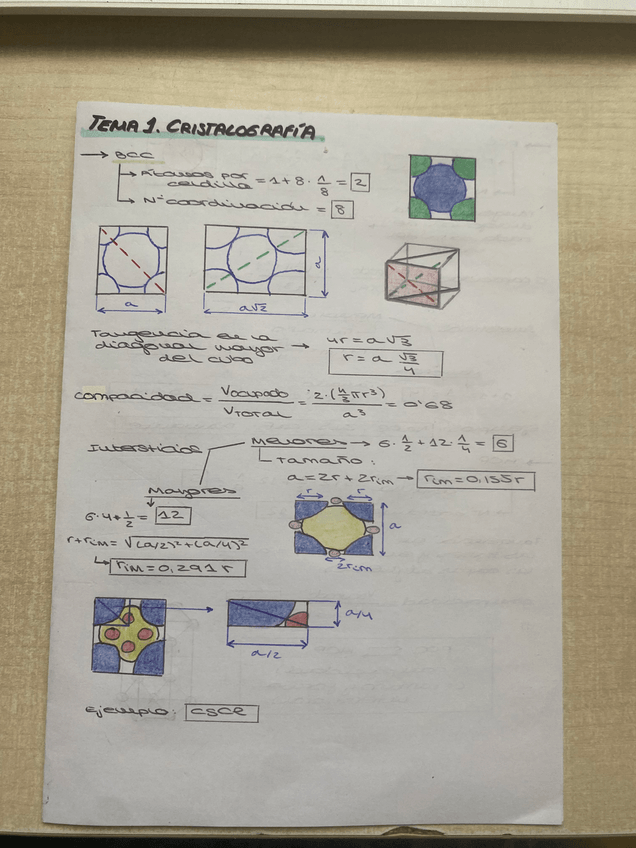 TEMA 1. CRISTALOGRAFÍA
→ BCC
→ Átomos por celdilla = 1 + 8 · 1/8 = 2
→ Nº coordinación = 8
a
a√2
a
Tangencia en la
diagonal mayor → 4r = a√3
del cubo
r = a √3/4
Compacidad = Vocupado/VTOTAL = 2·(4/3 πr³)/a³ = 0'68
Intersticios
Menores → 6 · 1/2 + 12 · 1/4 = 6
Tamaño:
a = 2r + 2rim → rim = 0,155r
Mayores
6·4·1/2 = 12
r + rim = √(a/2)² + (a/4)²
rim = 0,291r
r
r
a
2rim
a/4
a/2
Ejemplo: CsCl